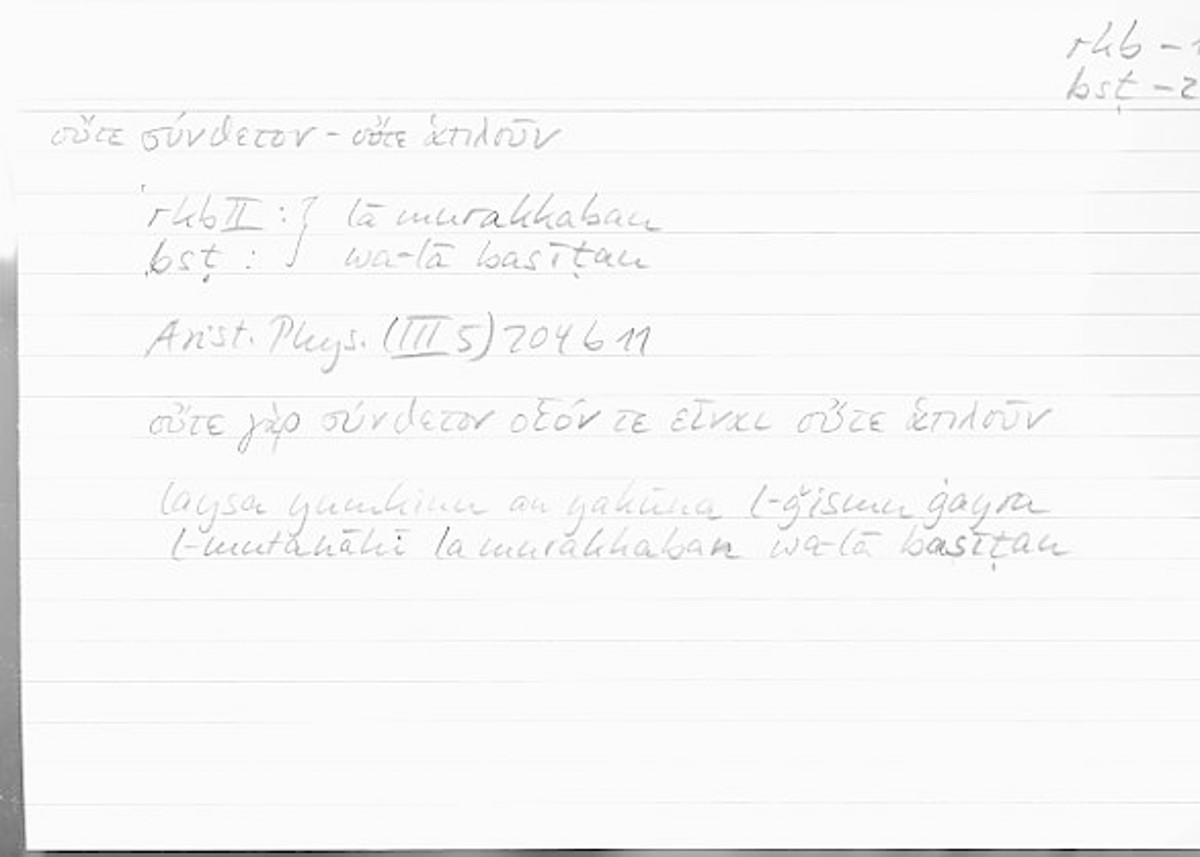 rkb – 1
bsṭ – 2
οὔτε σύνθετον – οὔτε ἁπλοῦν
rkb II : } lā murakkaban
bsṭ : wa-lā basīṭan
Arist. Phys. (III 5) 204 b 11
οὔτε γὰρ σύνθετον οἷόν τε εἶναι οὔτε ἁπλοῦν
laysa yumkinu an yakūna l-ǧismu ġayra
l-mutanāhī la murakkaban wa-lā basīṭan